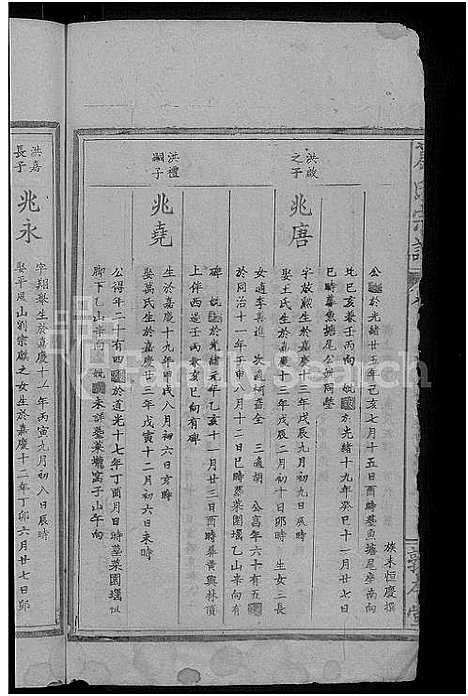 族末恒慶撰
公歿於光緒廿五年己亥七月十五日酉時葬魚塘尾座南向
北己亥兼壬丙向 妣歿於光緒十九年癸巳十一月廿七日
巳時葬魚塘尾公墳同塋
洪啟之子
兆唐
字啟勲生於嘉慶十三年戊辰九月初九日辰時
娶王氏生於嘉慶十三年戊辰二月初十日卯時 生女二長
女適李善進 次適柯嘉全 三適胡 公享年六十有五歿
於同治十一年壬申八月十二日巳時葬菜園堰乙山辛向有
碑 妣歿於光緒元年乙亥十一月廿三日酉時葬黄興林頂
上伴西邊壬丙兼亥巳向有碑
洪禮嗣子
兆堯
生於嘉慶十九年甲戌八月初六日亥時
娶萬氏生於嘉慶廿三年戊寅十二月初六日未時
公得年二十有四歿於道光十七年丁酉月日時葬菜園堰
脚下乙山辛向 妣歿未詳葬菜壠窩子山午向
洪嘉長子
兆永
字翔舉生於嘉慶十一年丙寅九月初八日辰時
娶平風山劉宗獻之女生於嘉慶十二年丁卯六月廿七日卯
FamilySearch